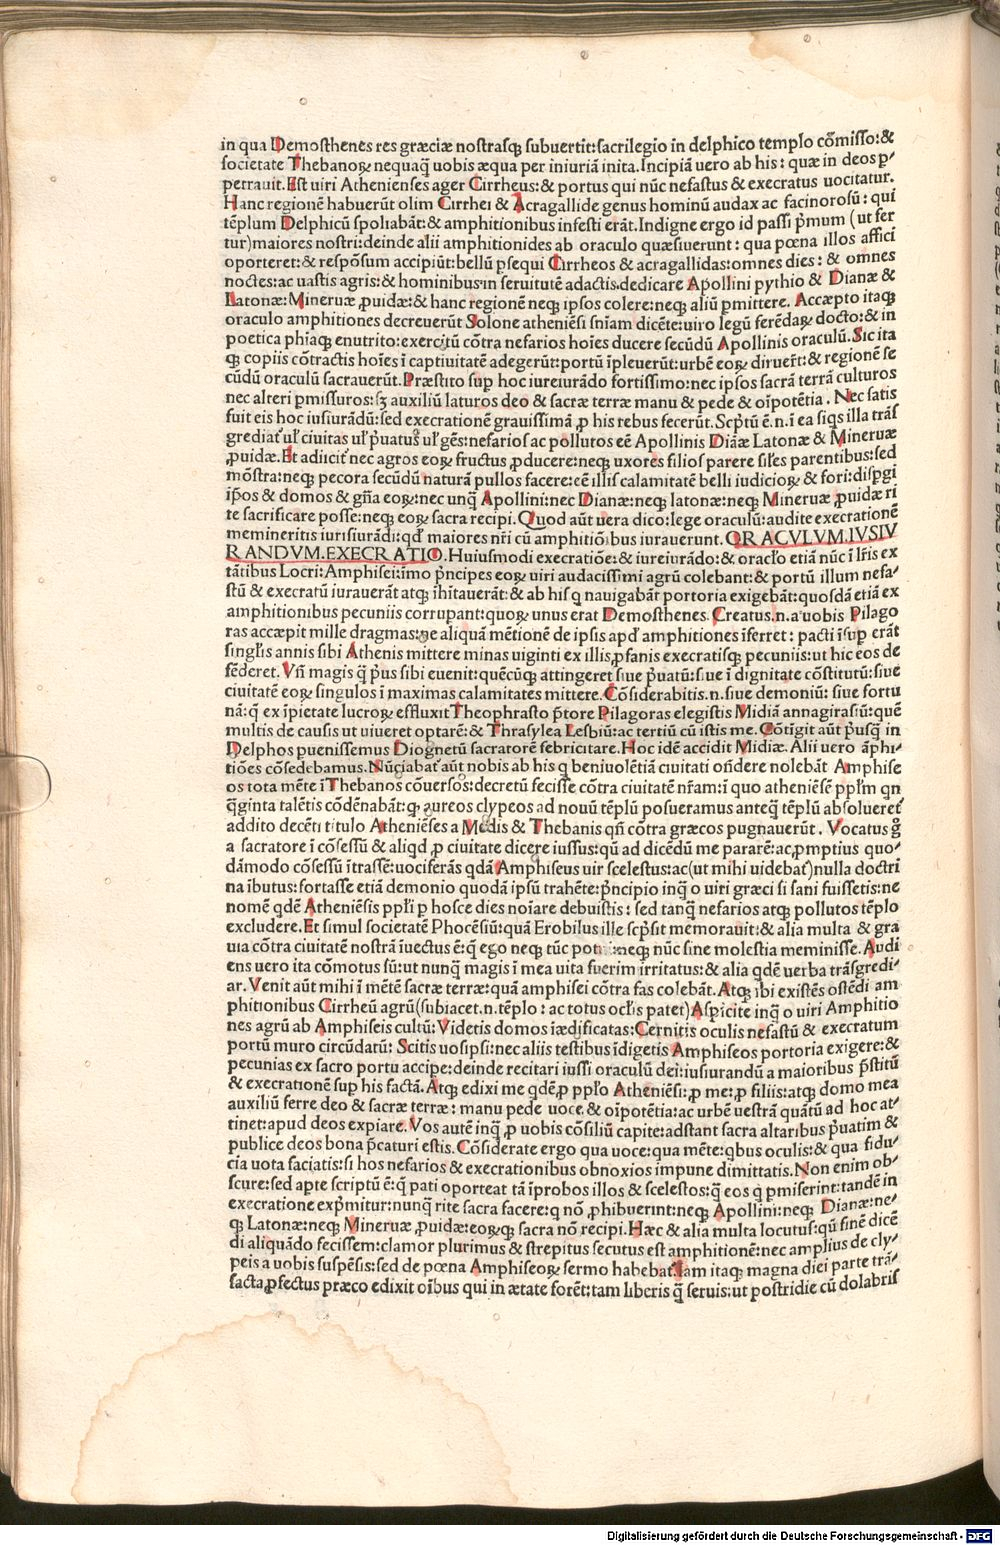 in qua Demosthenes res græciæ nostrasqꝫ subuertit:sacrilegio in delphico templo cõmisso:&
societate Thebanoꝝ nequaq̃ uobis æqua per iniuriã inita.Incipiã uero ab his: quæ in deos p̱⸗
petrauit.Est uiri Athenienses ager Cirrheus:& portus qui nũc nefastus & execratus uocitatur.
Hanc regionẽ habuerũt olim Cirrhei & Acragallide genus hominũ audax ac facinorosũ: qui
tẽplum Delphicũ spoliabãt:& amphitionibus infesti erãt.Indigne ergo id passi p̃mum (ut fer
tur)maiores nostri:deinde alii amphitionides ab oraculo quæsiuerunt: qua pœna illos affici
oporteret:& respõsum accipiũt:bellũ p̱sequi Cirrheos & acragallidas:omnes dies: & omnes
noctes:ac uastis agris:& hominibus in seruitutẽ adactis.dedicare Apollini pythio & Dianæ &
Latonæ:Mineruæ ꝓuidæ:& hanc regionẽ neqꝫ ipsos colere:neqꝫ aliũ p̱mittere. Accæpto itaqꝫ
oraculo amphitiones decreuerũt Solone atheniẽsi sñiam dicẽte:uiro legũ ferẽdaꝝ docto:& in
poetica phiaqꝫ enutrito:exercitũ cõtra nefarios hoĩes ducere secũdũ Apollinis oraculũ.Sic ita
qꝫ copiis cõtractis hoĩes ĩ captiuitatẽ adegerũt:portũ ĩpleuerũt:urbẽ eoꝝ diruerũt:& regionẽ se
cũdũ oraculũ sacrauerũt.Præstito sup̱ hoc iureiurãdo fortissimo:nec ipsos sacrã terrã culturos
nec alteri p̱missuros:sꝫ auxiliũ laturos deo & sacræ terræ manu & pede & oĩpotẽtia. Nec satis
fuit eis hoc iusiurãdũ:sed execrationẽ grauissimã ꝓ his rebus fecerũt.Scp̃tũ ẽ.n.ĩ ea siqs illa trãs
grediat̃ ul̃ ciuitas ul̃ p̃uatus ul̃ gẽs:nefarios ac pollutos eẽ Apollinis Diãæ Latonæ & Mineruæ
ꝓuidæ.Et adiicit̃ nec agros eoꝝ fructus ꝓducere:neqꝫ uxores filios parere siles parentibus:sed
mõstra:neqꝫ pecora secũdũ naturã pullos facere:eẽ illis calamitatẽ belli iudicioꝝ & fori:disp̱gi
ip̃os & domos & gña eoꝝ:nec unq̃ Apollini:nec Dianæ:neqꝫ latonæ:neqꝫ Mineruæ ꝓuidæ ri
te sacrificare posse:neqꝫ eoꝝ sacra recipi.Quod aũt uera dico:lege oraculũ:audite execrationẽ
memineritis iurisiurãdi:qd̃ maiores nr̃i cũ amphitiõibus iurauerunt.ORACVLVM.IVSIV
RANDVM.EXECRATIO.Huiusmodi execratiõe:& iureiurãdo:& oraclo etiã nũc ĩ lr̃is ex
tãtibus Locri:Amphisei:imo p̃ncipes eoꝝ uiri audacissimi agrũ colebant:& portũ illum nefa⸗
stũ & execratũ iurauerãt atqꝫ ĩhĩtauerãt:& ab his q̃ nauigabãt portoria exigebãt:quosdã etiã ex
amphitionibus pecuniis corrupant:quoꝝ unus erat Demosthenes.Creatus.n.a uobis Pilago
ras accæpit mille dragmas:ne aliquã mẽtionẽ de ipsis apd̃ amphitiones ĩferret: pacti ĩsup̱ erãt
singlis annis sibi Athenis mittere minas uiginti ex illis ꝓfanis execratisqꝫ pecuniis:ut hic eos de
fẽderet.Vñ magis q̃ p̃us sibi euenit:quẽcũqꝫ attingeret siue p̃uatũ:siue ĩ dignitate cõstitutũ:siue
ciuitatẽ eoꝝ singulos ĩ maximas calamitates mittere.Cõsiderabitis.n.siue demoniũ: siue fortu
nã:q̃ ex ĩpietate lucroꝝ effluxit Theophrasto p̃tore Pilagoras elegistis Midiã annagirasiũ:quẽ
multis de causis ut uiueret optarẽ:& Thrasylea Lesbiũ:ac tertiũ cũ istis me.Cõtigit aũt p̃usq̃ in
Delphos p̱uenissemus Diognetũ sacratorẽ febricitare.Hoc idẽ accidit Midiæ.Alii uero ãphi⸗
tiões cõsedebamus.Nũciabat̃ aũt nobis ab his q̃ beniuolẽtiã ciuitati oñdere nolebãt Amphise
os tota mẽte ĩ Thebanos cõuersos:decretũ fecisse cõtra ciuitatẽ nr̃am:ĩ quo atheniẽsẽ pplm qn
q̃ginta talẽtis cõdẽnabãt:qꝫ aureos clypeos ad nouũ tẽplũ posueramus anteq̃ tẽplũ absolueret̃
addito decẽti titulo Atheniẽses a Medis & Thebanis qñ cõtra græcos pugnauerũt. Vocatus g̃
a sacratore ĩ cõsessũ & aliqd ꝓ ciuitate dicere iussus:qũ ad dicẽdũ me pararẽ:ac ꝓmptius quo⸗
dãmodo cõsessũ ĩtrassẽ:uociferãs qdã Amphiseus uir scelestus:ac(ut mihi uidebat̃)nulla doctri
na ĩbutus:fortasse etiã demonio quodã ipsũ trahẽte:p̃ncipio inq̃ o uiri græci si sani fuissetis:ne
nomẽ qdẽ Atheniẽsis ppl̃i p̱ hosce dies noĩare debuistis: sed tanq̃ nefarios atqꝫ pollutos tẽplo
excludere.Et simul societatẽ Phocẽsiũ:quã Erobilus ille scp̃sit memorauit:& alia multa & gra
uia cõtra ciuitatẽ nostrã ĩuectus ẽ:q̃ ego neqꝫ tũc neqꝫ nũc sine molestia meminisse.Audi
ens uero ita cõmotus sũ:ut nunq̃ magis ĩ mea uita fuerim irritatus:& alia qdẽ uerba trãsgredi⸗
ar.Venit aũt mihi ĩ mẽtẽ sacræ terræ:quã amphisei cõtra fas colebãt.Atqꝫ ibi existẽs ostẽdi am
phitionibus Cirrheũ agrũ(subiacet.n.tẽplo: ac totus oclis patet)Aspicite inq̃ o uiri Amphitio
nes agrũ ab Amphiseis cultũ:Videtis domos iædificatas:Cernitis oculis nefastũ & execratum
portũ muro circũdatũ: Scitis uosipsi:nec aliis testibus ĩdigetis Amphiseos portoria exigere:&
pecunias ex sacro portu accipe:deinde recitari iussi oraculũ dei:iusiurandũ a maioribus p̃stitũ
& execrationẽ sup̱ his factã.Atqꝫ edixi me qdẽ ꝓ pplo Atheniẽsi:ꝓ me:ꝓ filiis:atqꝫ domo mea
auxiliũ ferre deo & sacræ terræ: manu pede uoce & oĩpotẽtia:ac urbẽ uestrã quãtũ ad hoc at⸗
tinet:apud deos expiare.Vos autẽ inq̃ ꝓ uobis cõsiliũ capite:adstant sacra altaribus p̃uatim &
publice deos bona p̃caturi estis.Cõsiderate ergo qua uoce:qua mẽte:qbus oculis:& qua fidu⸗
cia uota faciatis:si hos nefarios & execrationibus obnoxios impune dimittatis.Non enim ob⸗
scure:sed ap̱te scriptũ ẽ:q̃ pati oporteat tã ĩprobos illos & scelestos:q̃ eos q̃ p̱miserint:tandẽ in
execratione exp̃mitur:nunq̃ rite sacra facere:q̃ nõ ꝓhibuerint:neqꝫ Apollini:neqꝫ Dianæ:ne⸗
qꝫ Latonæ:neqꝫ Mineruæ ꝓuidæ:eoꝝqꝫ sacra nõ recipi.Hæc & alia multa locutus:qũ finẽ dicẽ
di aliquãdo fecissem:clamor plurimus & strepitus secutus est amphitionẽ:nec amplius de cly⸗
peis a uobis suspẽsis:sed de pœna Amphiseoꝝ sermo habebat̃.Iam itaqꝫ magna diei parte trã⸗
sacta ꝓfectus præco edixit oĩbus qui in ætate forẽt:tam liberis q̃ seruis:ut postridie cũ dolabris
Digitalisierung gefördert durch die Deutsche Forschungsgemeinschaft - DFG